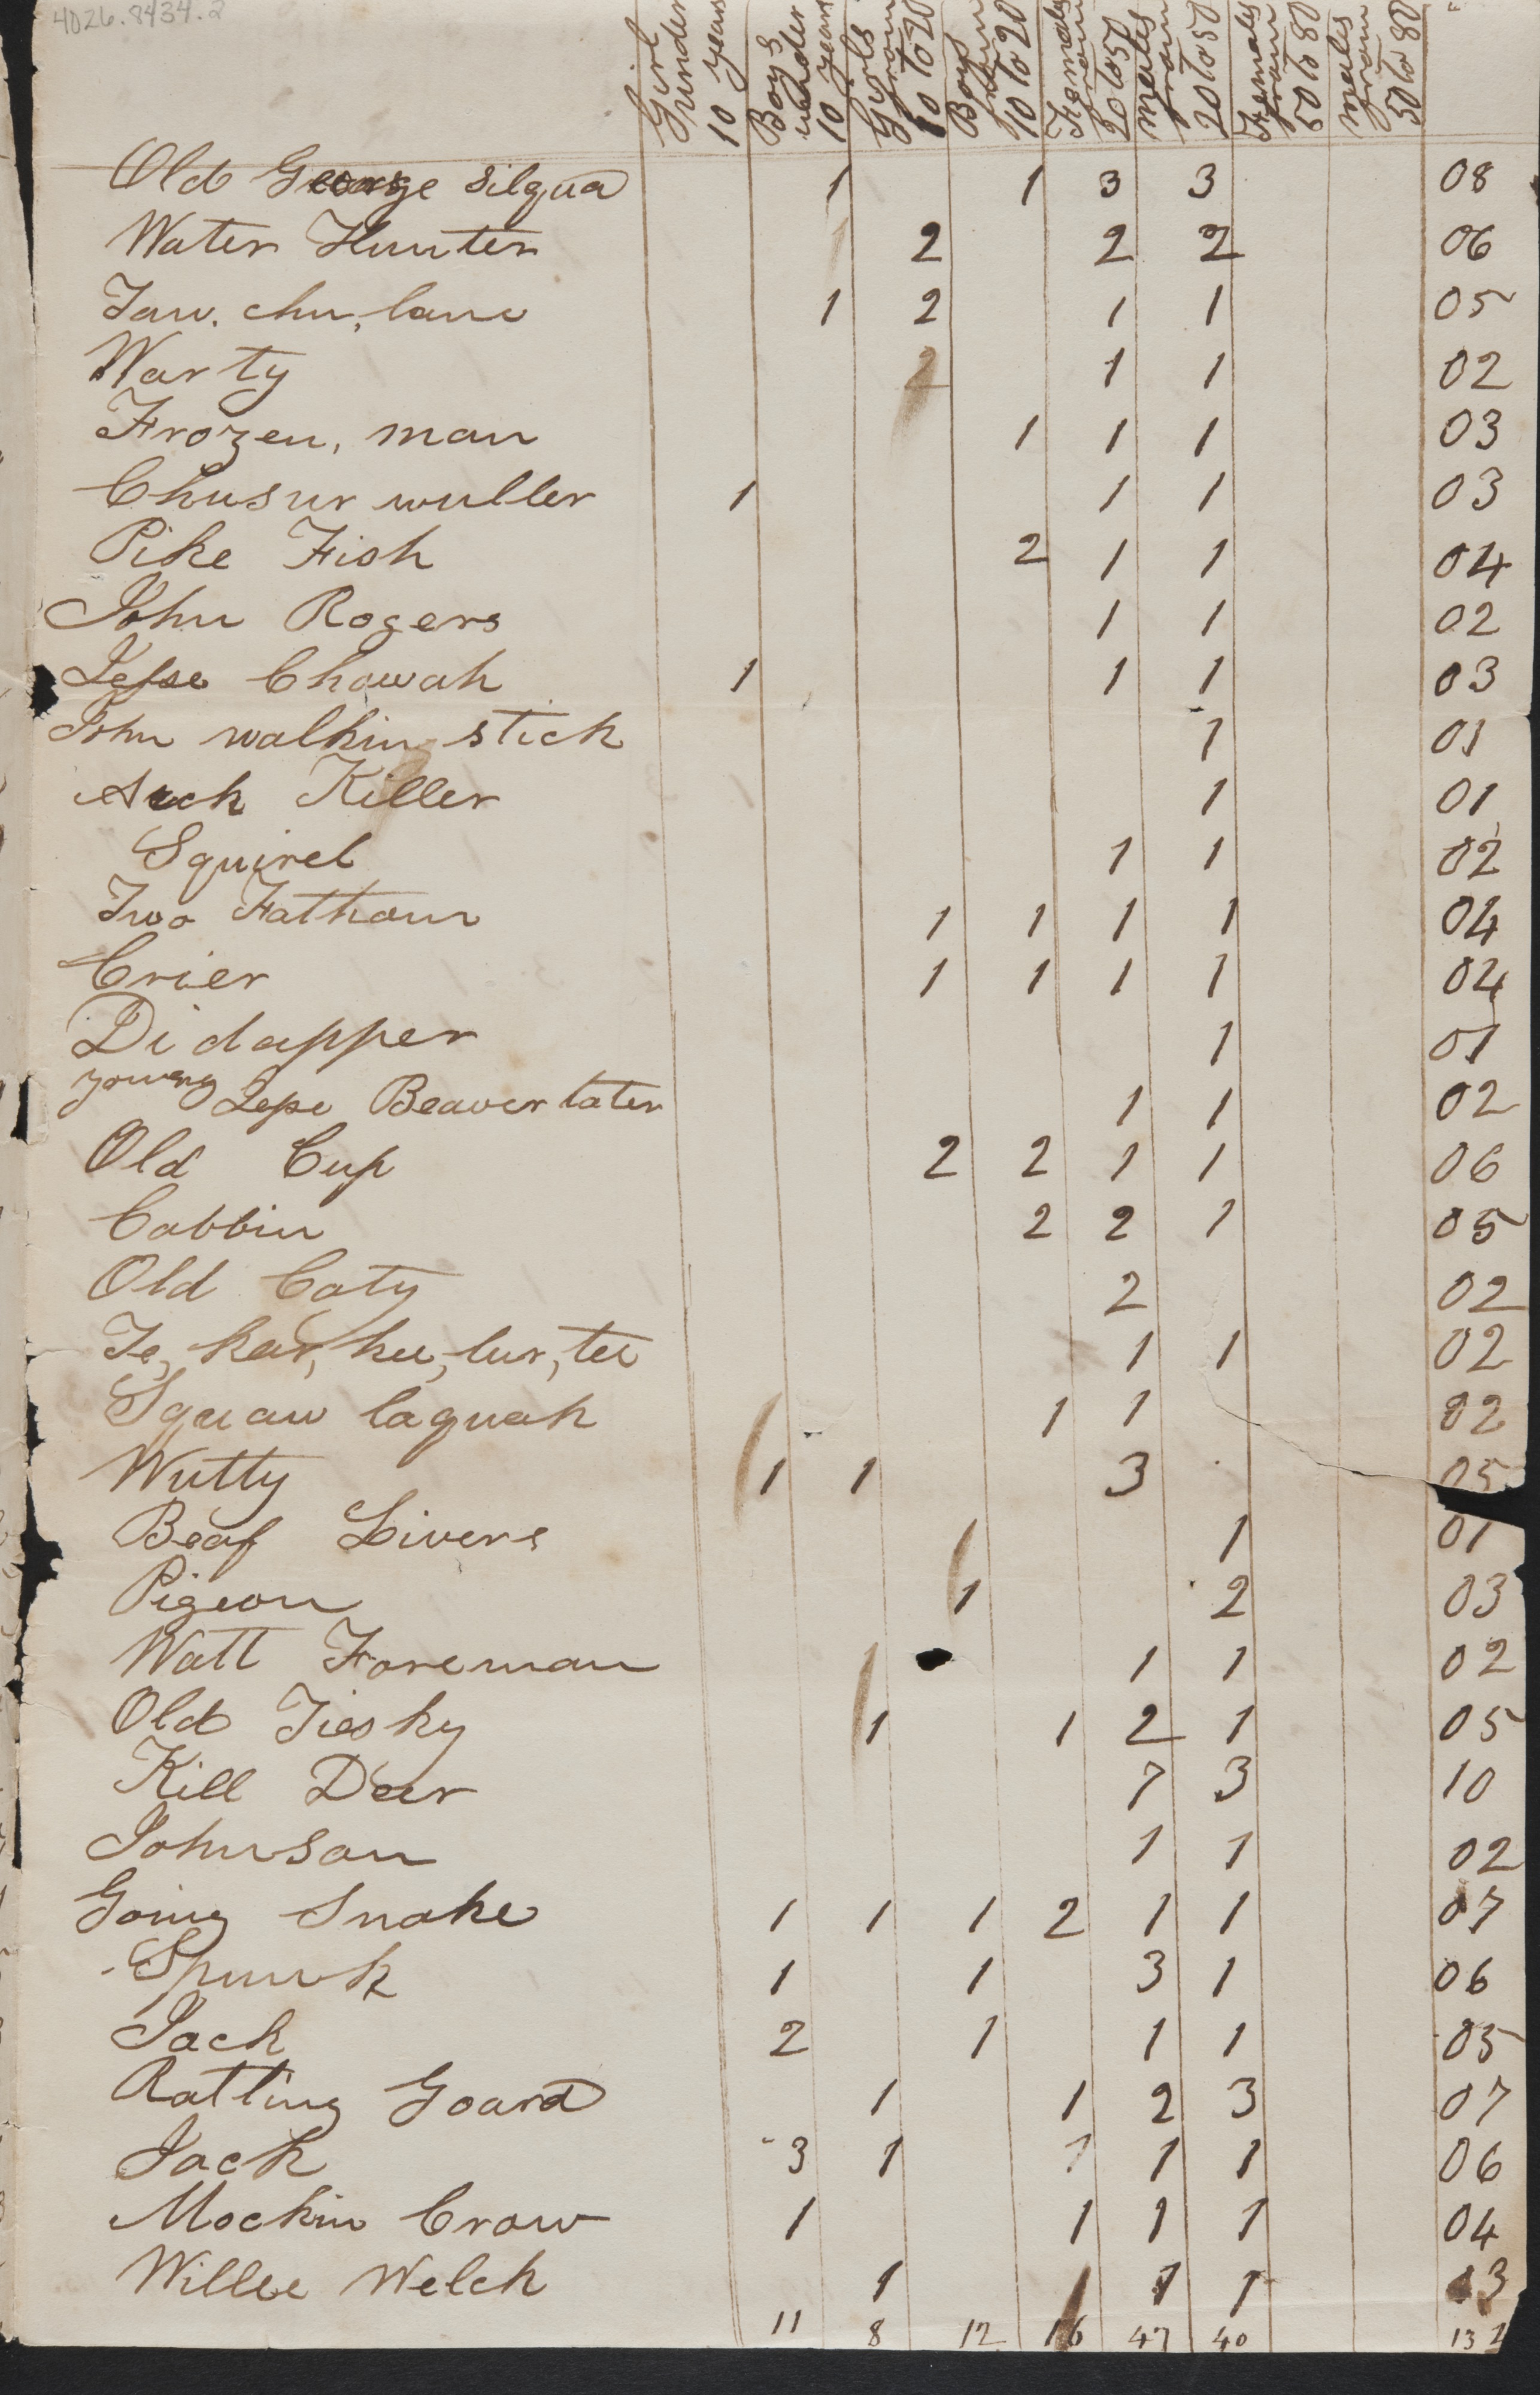 4026.8434.2
Girl under 10 years
Boys under 10 years
Girls from 10 to 20
Boys from 10 to 20
Females from 20 to 50
Males from 20 to 50
Females from 50 to 80
Males from 50 to 80
Old George Silqua 1 1 3 3 08
Water Hunter 2 2 2 06
Taw. chu, lane 1 2 1 1 05
Warty 2 1 1 02
Frozen, man 1 1 1 03
Chusur wuller 1 1 1 03
Pike Fish 2 1 1 04
John Rogers 1 1 02
Jesse Chowah 1 1 1 03
John walkin stick 1 01
Killer 1 01
Squirel 1 1 02
Two Fathom 1 1 1 1 04
Crier 1 1 1 1 04
Didapper 1 01
young Jesse Beaver tater 1 1 02
Old Cup 2 2 1 1 06
Cabbin 2 2 1 05
Old Caty 2 02
Te, kar, hee, lur, tee 1 1 02
Squaw laquah 1 1 02
Wutty 1 1 3 05
Beaf Livers 1 01
Pigeon 1 2 03
Watt Foreman 1 1 02
Old Tiesky 1 1 2 1 05
Kill Deer 7 3 10
Johnson 1 1 02
Going Snake 1 1 1 2 1 1 07
Spunk 1 1 3 1 06
Jack 2 1 1 1 05
Ratling Goard 1 1 2 3 07
Jack 3 1 1 1 1 06
Mockin Crow 1 1 1 1 04
Willee Welch 1 1 1 3
11 8 12 16 47 40 132